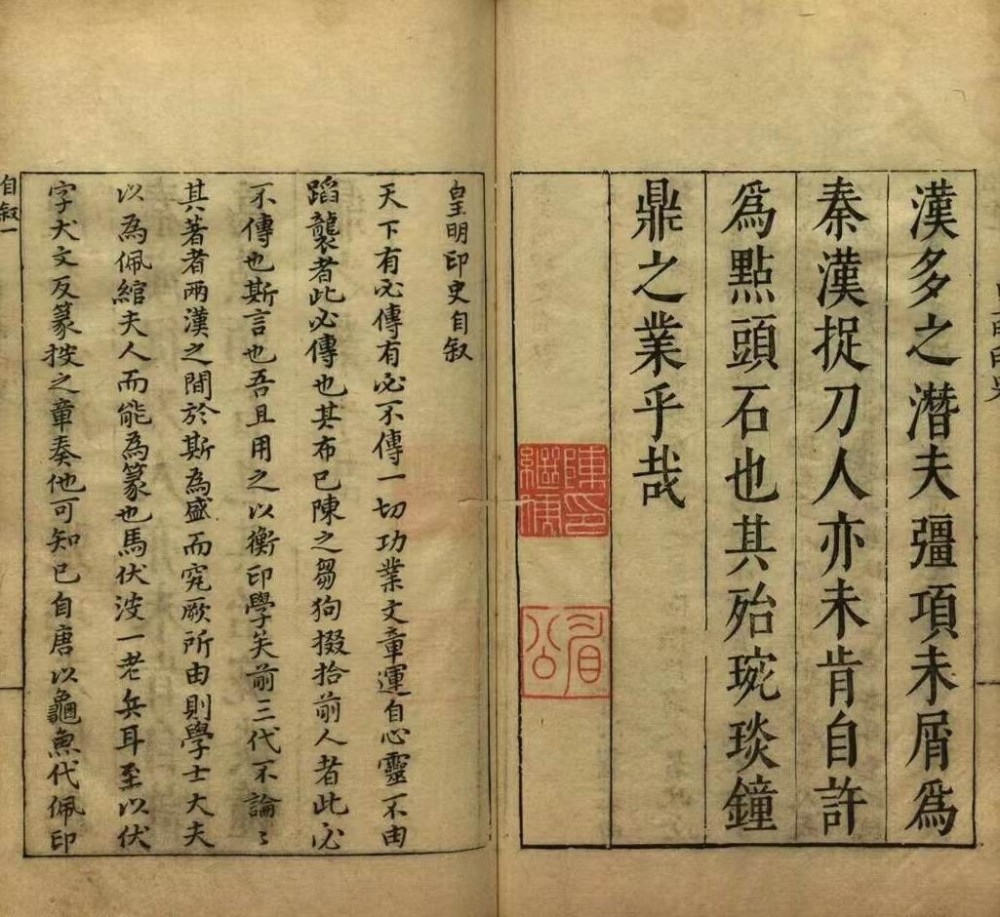 漢多之潛夫彊項未屑爲
秦漢捉刀人亦未肯自許
爲點頭石也其殆琬琰鐘
鼎之業乎哉
陳印
繼儒
眉
公
皇明印史自叙
天下有必傳有必不傳一切功業文章運自心靈不由
蹈襲者此必傳也其布已陳之芻狗掇拾前人者此必
不傳也斯言也吾且用之以衡印學矣前三代不論〻
其著者兩漢之間於斯為盛而究厥所由則學士大夫
以為佩綰夫人而能為篆也馬伏波一老兵耳至以伏
字犬文反篆按之章奏他可知已自唐以龜魚代佩印
自叙一